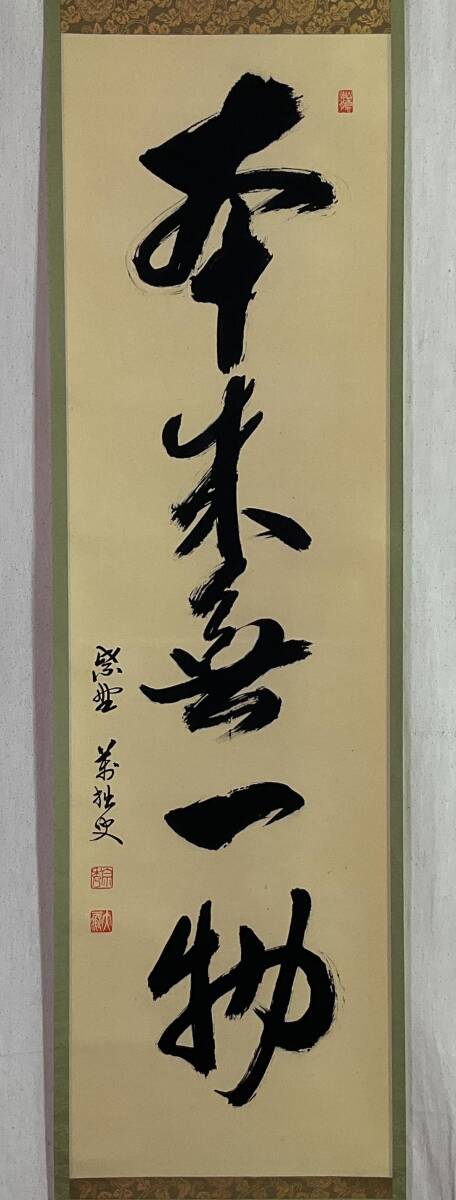 本来無一物
紫野 萬拙叟